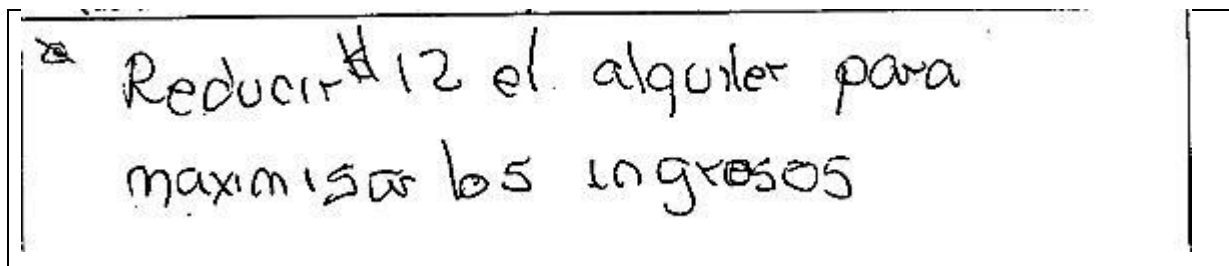 Reducir $12 el alquiler para
maximisar los ingresos